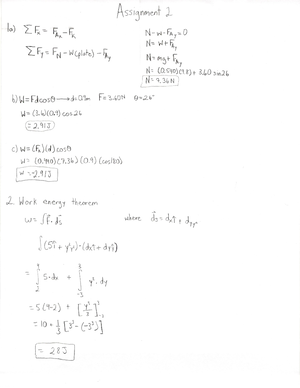 Assignment 2
1a) ΣFx = FAx - Fk
ΣFy = FN - W(plate) - FAy
N - w - FAy = 0
N = w + FAy
N = mg + FAy
N = (0.590)(9.8) + 3.60 sin 26
N = 7.36N
b) W = Fdcosθ → d = 0.9m F = 3.60N θ = 26°
W = (3.6)(0.9) cos 26
= 2.91J
c) W = (Fk)(d) cosθ
W = (7.36)(0.9)(cos180)
W = -2.91J
2. Work energy theorem
W = ∫F·ds where ds = dxî + dyĵ
∫(5î + y²ĵ)·(dxî + dyĵ)
= ∫ 5·dx + ∫ y²·dy
= 5(4-2) + [y³/3]
= 10 + 1/3 [3³ - (-3³)]
= 28J